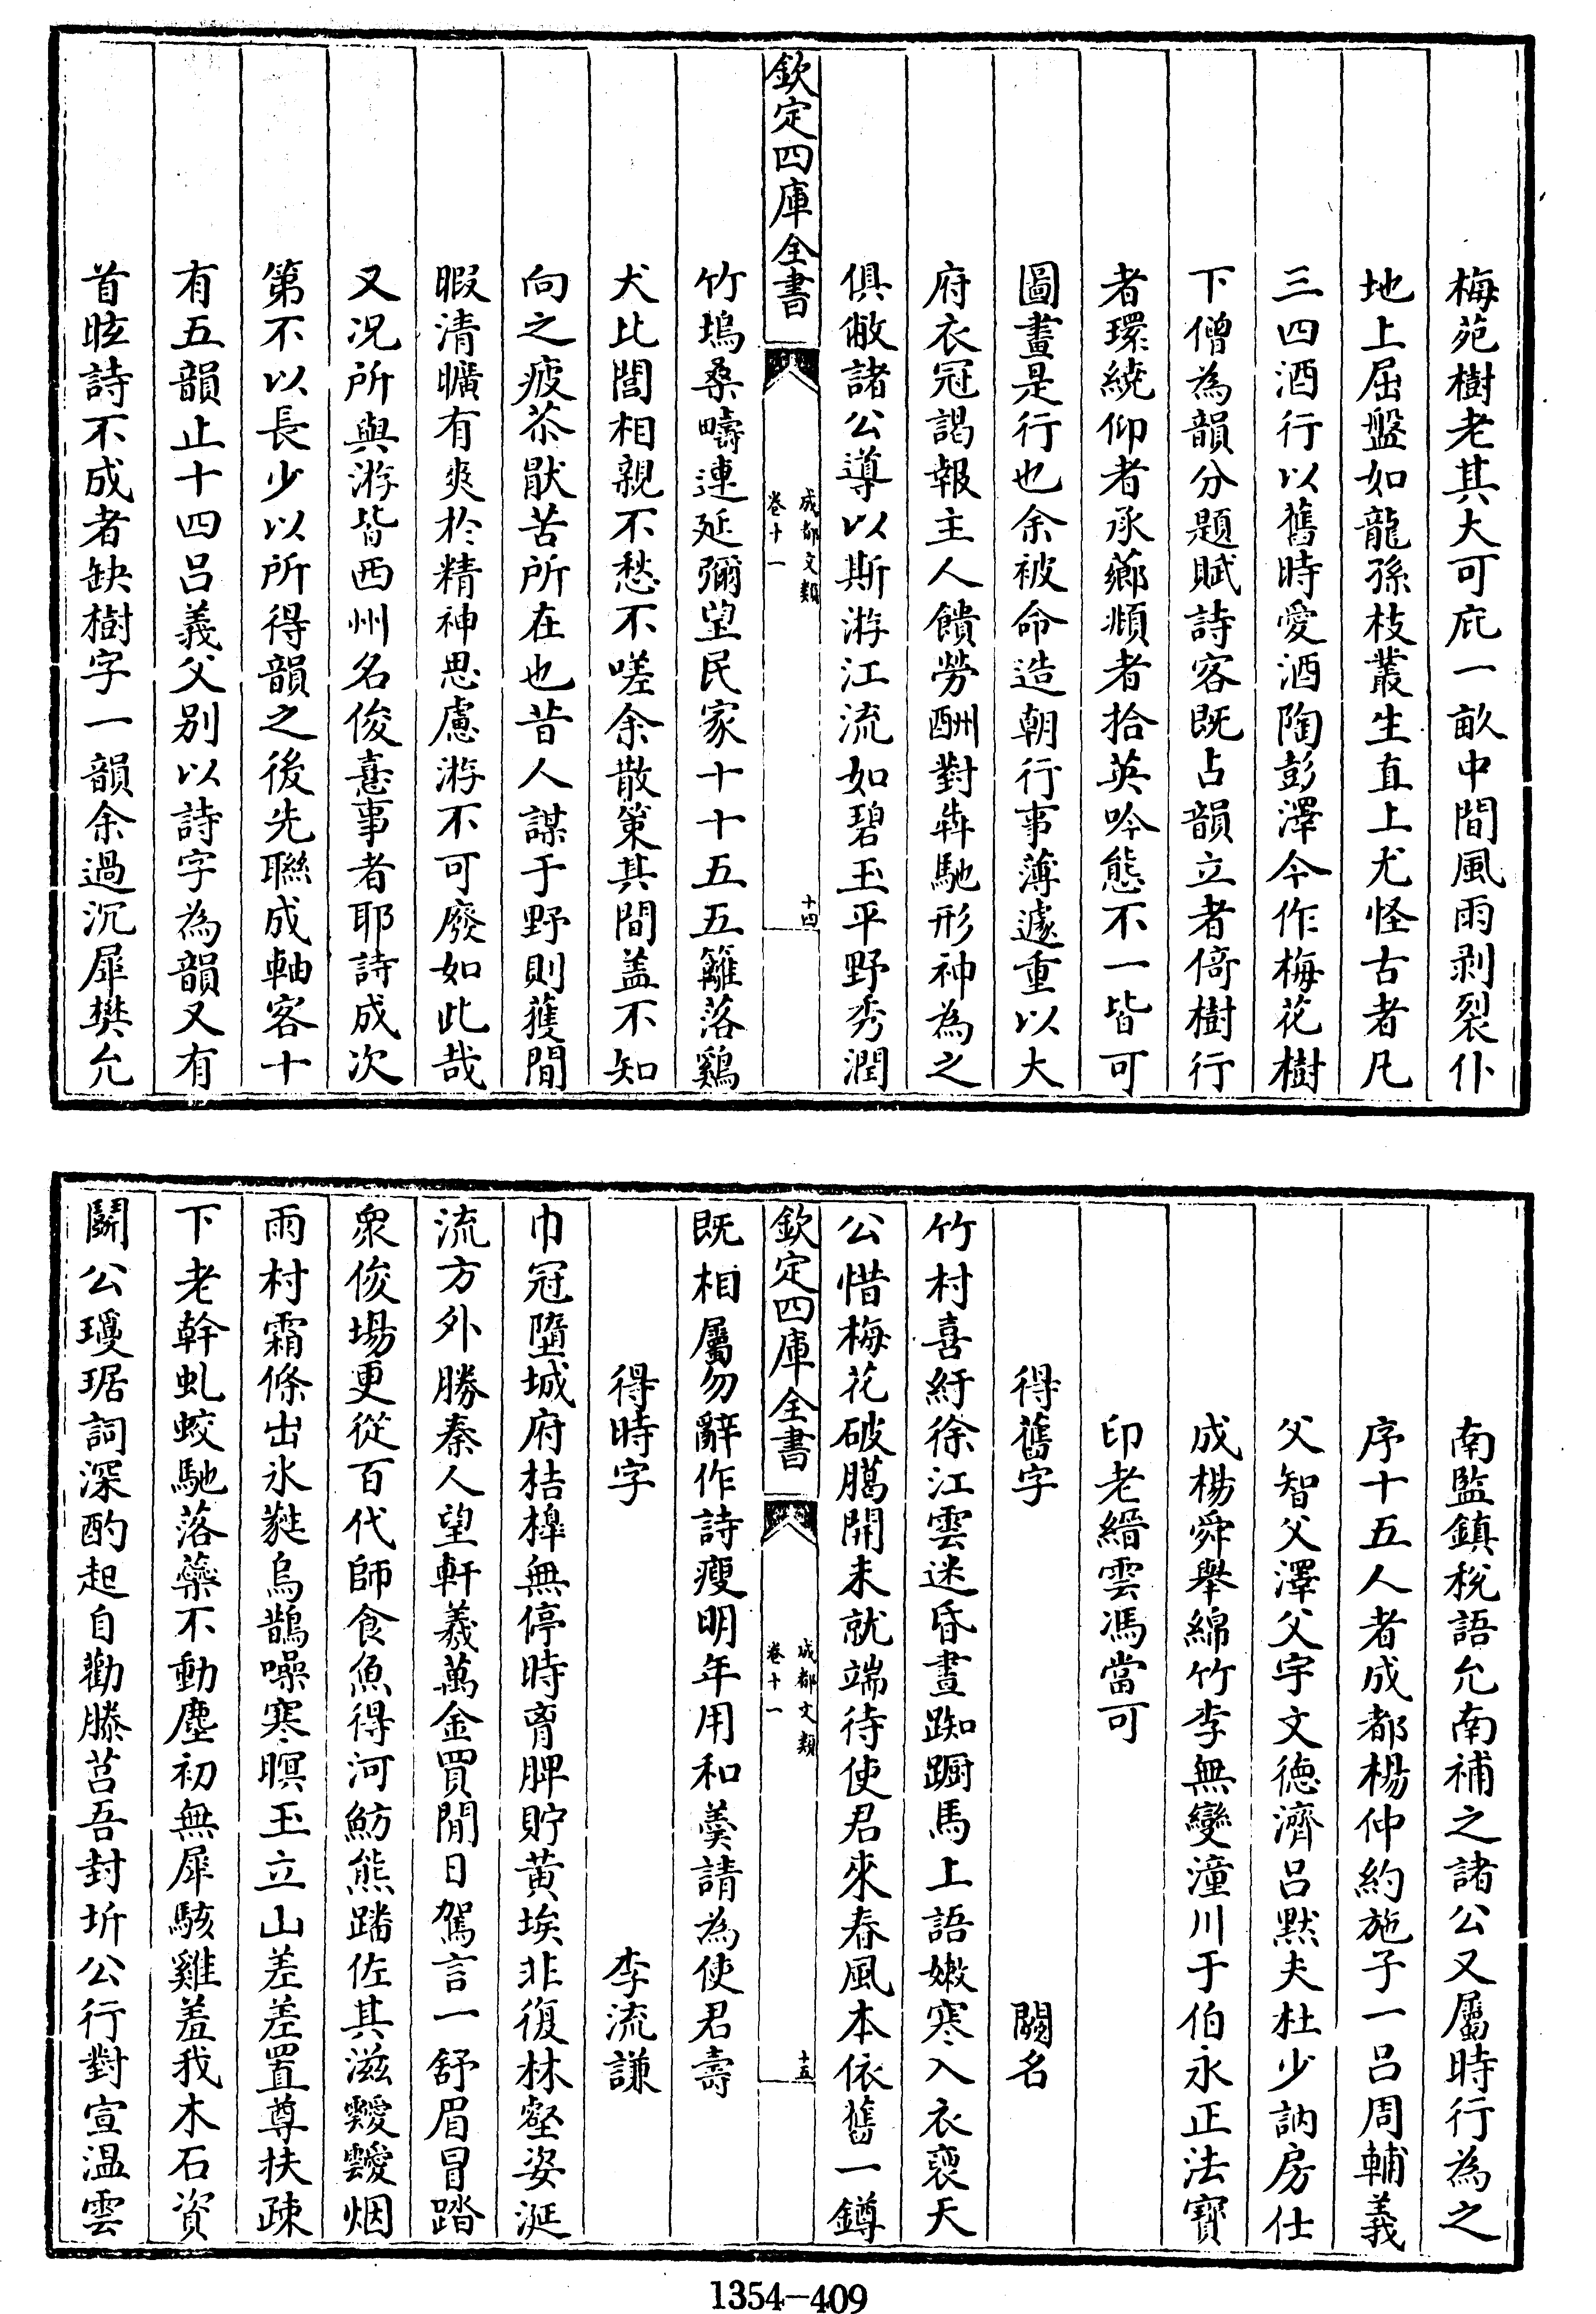 梅苑樹老其大可庇一畝中間風雨剥裂仆
地上屈盤如龍孫枝叢生直上尤怪古者凡
三四酒行以舊時愛酒陶彭澤今作梅花樹
下僧為韻分題賦詩客既占韻立者倚樹行
者環繞仰者承薌頫者拾英吟態不一皆可
圖畫是行也余被命造朝行事薄遽重以大
府衣冠謁報主人饋勞酬對犇馳形神為之
俱敝諸公導以斯游江流如碧玉平野秀潤
欽定四庫全書
成都文類
卷十一
十四
竹塢桑疇連延彌望民家十十五五籬落鷄
犬比閭相親不愁不嗟余散策其間盖不知
向之疲苶厭苦所在也昔人謀于野則獲閒
暇清曠有爽於精神思慮游不可廢如此哉
又况所與游皆西州名俊憙事者耶詩成次
第不以長少以所得韻之後先聯成軸客十
有五韻止十四吕義父别以詩字為韻又有
首眩詩不成者缺樹字一韻余過沉犀樊允
南監鎮稅語允南補之諸公又屬時行為之
序十五人者成都楊仲約施子一吕周輔義
父智父澤父宇文德濟吕黙夫杜少訥房仕
成楊舜舉綿竹李無變潼川于伯永正法寶
印老縉雲馮當可
得舊字
闕名
竹村喜紆徐江雲迷昏晝踟蹰馬上語嫩寒入衣褎天
公惜梅花破臈開未就端待使君來春風本依舊一鐏
欽定四庫全書
成都文類
卷十一
十五
既相屬勿辭作詩瘦明年用和羮請為使君壽
得時字
李流謙
巾冠墮城府桔槹無停時胷脾貯黄埃非復林壑姿涎
流方外勝秦人望軒羲萬金買閒日駕言一舒眉冒踏
衆俊場更從百代師食魚得河魴熊蹯佐其滋靉靉烟
雨村霜條出氷蕤烏鵲噪寒暝玉立山差差置尊扶疎
下老幹虬蛟馳落蘂不動塵初無犀駭雞羞我木石資
鬭公瓊琚詞深酌起自勸滕莒吾封圻公行對宣温雲
1354-409